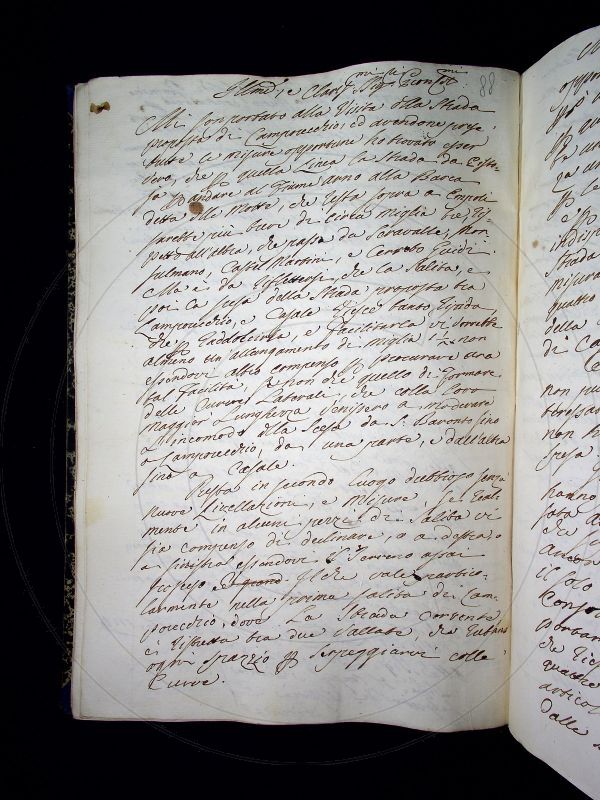 Illmi, e Clarmi Sigri Pron Col
mi
88
Mi son portato alla Vista della Strada
proposta di Campovecchio, ed avendone prese
tutte le misure opportune ho trovato esser
vero, che p quella Linea la Strada da
p andare al Fiume Arno alla Barca
detta delle Motte, che resta sopra a Empoli
sarebbe più breve di circa miglia tre ris
petto all'altra, che passa da Seravalle, Mon
sulmano, Castel Martini, e Cerreto Guidi.
Ma è da riflettersi, che la Salita, e
poi la scesa della Strada proposta tra
Campovecchio, e Casale riesce tanto ripida,
che p raddolcirla, e facilitarla vi vorrebbe
almeno un'allungamento di miglia non
essendovi altro compenso p procurare una
tal facilità, se non che quello di formare
delle Curve Laterali, che colla loro
maggior Lunghezza venissero a moderare
l'incomodo della Scesa da S. Baronto fino
a Campovecchio, da una parte, e dall'altra
fino a Casale.
Resta in secondo luogo dubbioso senza
nuove Livellazioni, e Misure, se real
mente in alcuni pezzi di Salita vi
sia compenso di declinare, o a destra o
a sinistra essendovi il Terreno assai
scosceso e Il che vale partico-
larmente nella prima salita di Cam
povecchio, dove La Strada corrente
è ristretta tra due Vallate, che rubano
ogni spazio p serpeggiarvi colle
Curve.